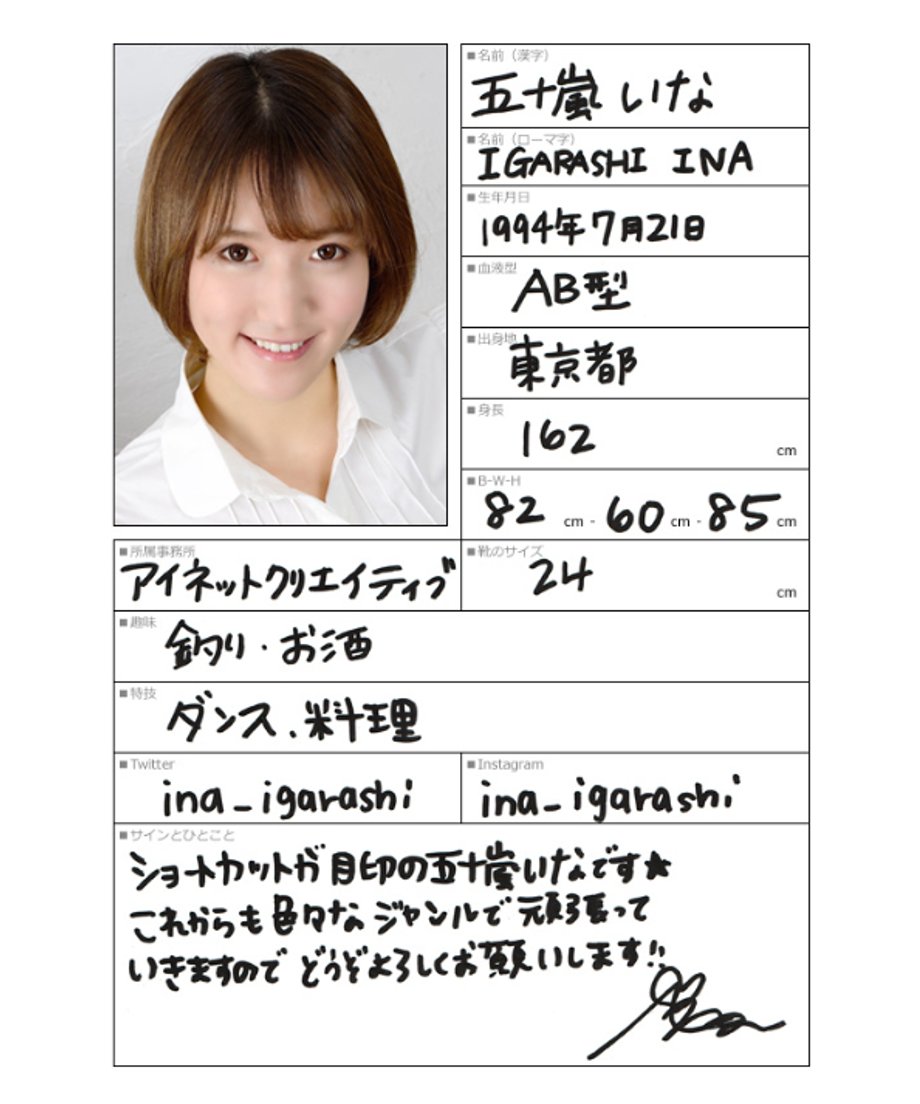 ■名前（漢字）
五十嵐 いな
■名前（ローマ字）
IGARASHI INA
■生年月日
1994年7月21日
■血液型
AB型
■出身地
東京都
■身長
162 cm
■B-W-H
82 cm - 60 cm - 85 cm
■所属事務所
アイネットクリエイティブ
■靴のサイズ
24 cm
■趣味
釣り・お酒
■特技
ダンス、料理
■Twitter
ina_igarashi
■Instagram
ina_igarashi
■サインとひとこと
ショートカットが目印の五十嵐いなです★
これからも色々なジャンルで頑張って
いきますので どうぞよろしくお願いします!!